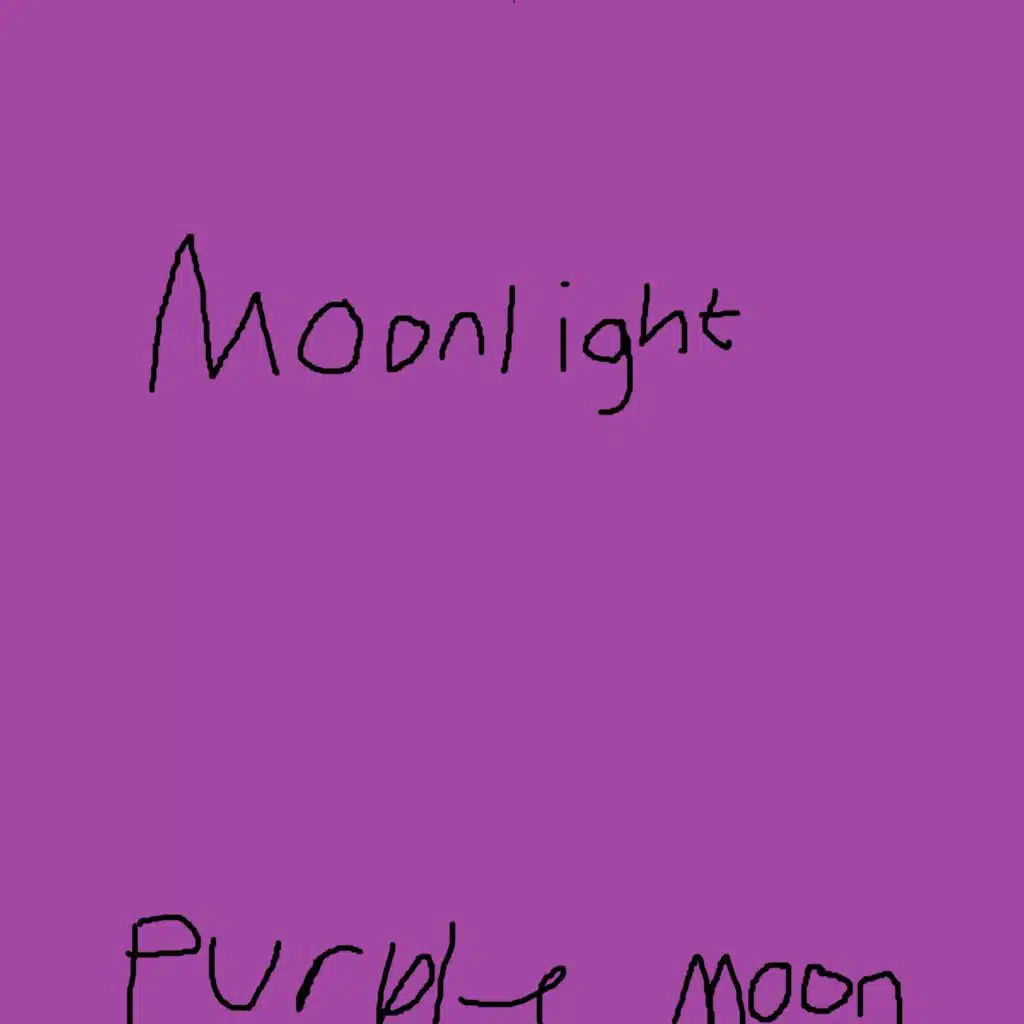 Moonlight
Purple Moon